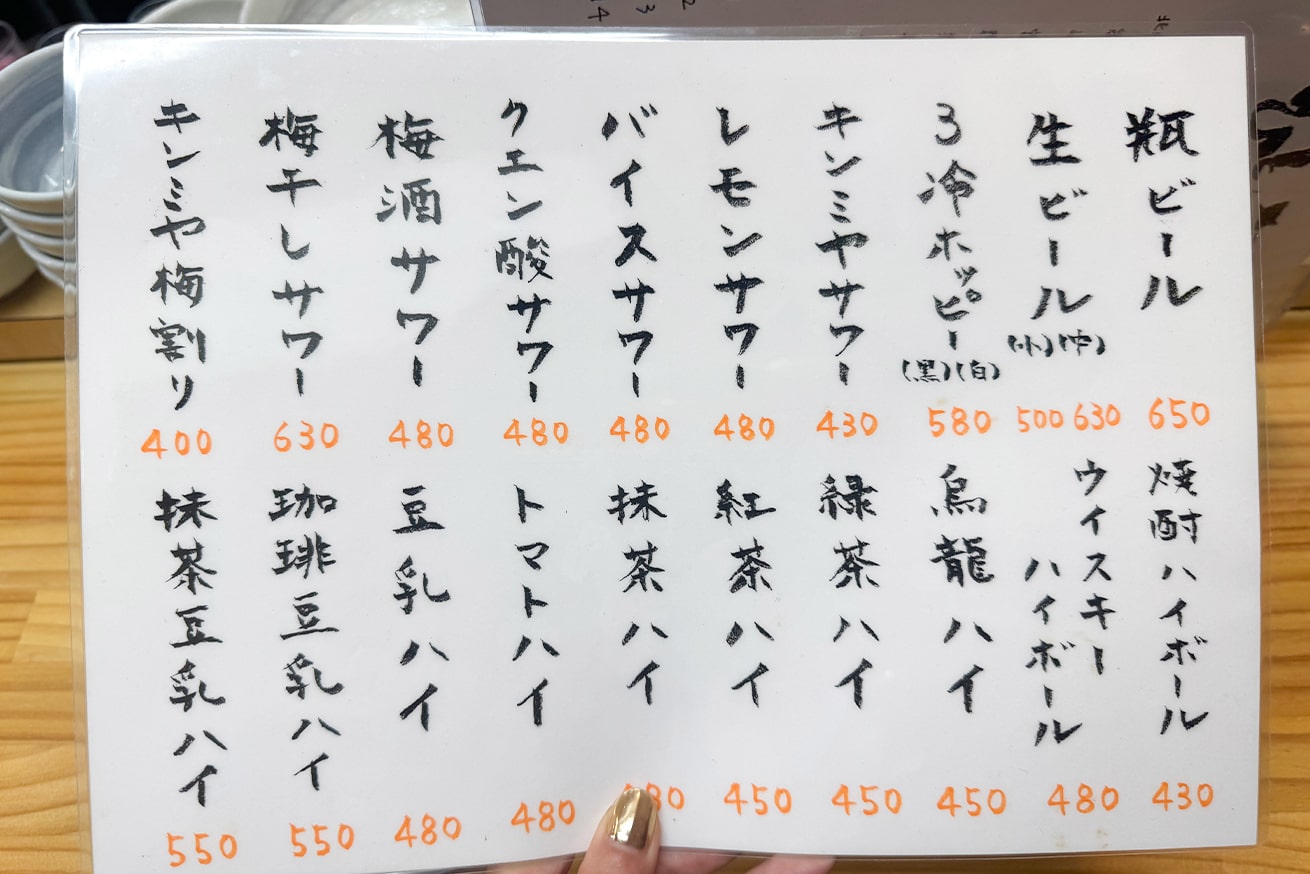 瓶ビール
650
生ビール(小)(中)
500 630
3冷ホッピー(黒)(白)
580
キンミヤサワー
430
レモンサワー
480
バイスサワー
480
クエン酸サワー
480
梅酒サワー
480
梅干しサワー
630
キンミヤ梅割り
400
焼酎ハイボール
430
ウイスキー
ハイボール
480
烏龍ハイ
450
緑茶ハイ
450
紅茶ハイ
450
抹茶ハイ
80
トマトハイ
480
豆乳ハイ
480
珈琲豆乳ハイ
550
抹茶豆乳ハイ
550